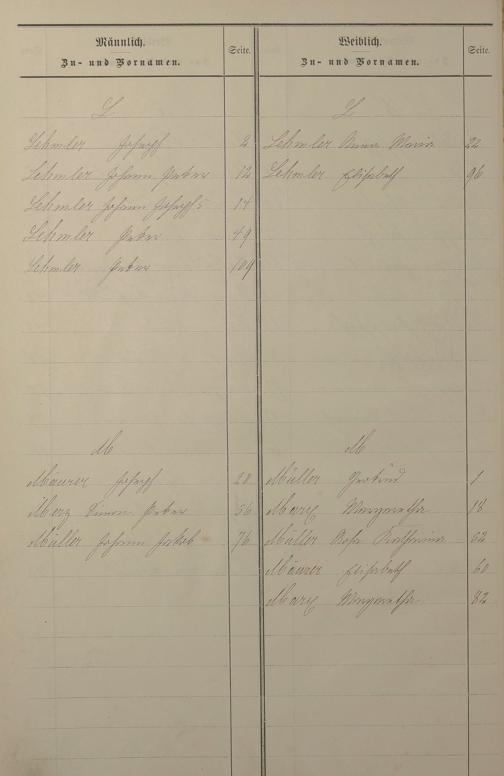 Männlich.
Zu- und Vornamen.
Seite.
L
Lehmler Joseph 2
Lehmler Johann Peter 12
Lehmler Johann Joseph 14
Lehmler Peter 49
Lehmler Peter 109
M
Maurer Joseph 28
Simon Peter 56
Müller Johann Jakob 76
Weiblich.
Zu- und Vornamen.
Seite.
L
Lehmler Anna Maria 22
Lehmler Elisabeth 96
M
Müller Gertrud 1
Marx Margaretha 18
Müller Rosa Katharina 62
Maurer Elisabeth 60
Marx Margaretha 82